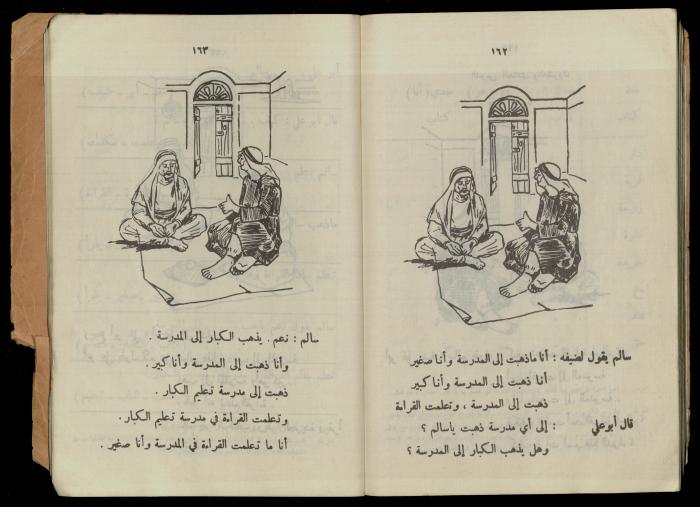 ١٦٢
سالم يقول لضيفه : أنا ماذهبت إلى المدرسة وأنا صغير
أنا ذهبت إلى المدرسة وأنا كبير
ذهبت إلى المدرسة ، وتعلمت القراءة
قال أبوعلي : إلى أي مدرسة ذهبت ياسالم ؟
وهل يذهب الكبار إلى المدرسة ؟
١٦٣
سالم : نعم . يذهب الكبار إلى المدرسة .
وأنا ذهبت إلى المدرسة وأنا كبير .
ذهبت إلى مدرسة تعليم الكبار .
وتعلمت القراءة في مدرسة تعليم الكبار .
أنا ما تعلمت القراءة في المدرسة وأنا صغير .